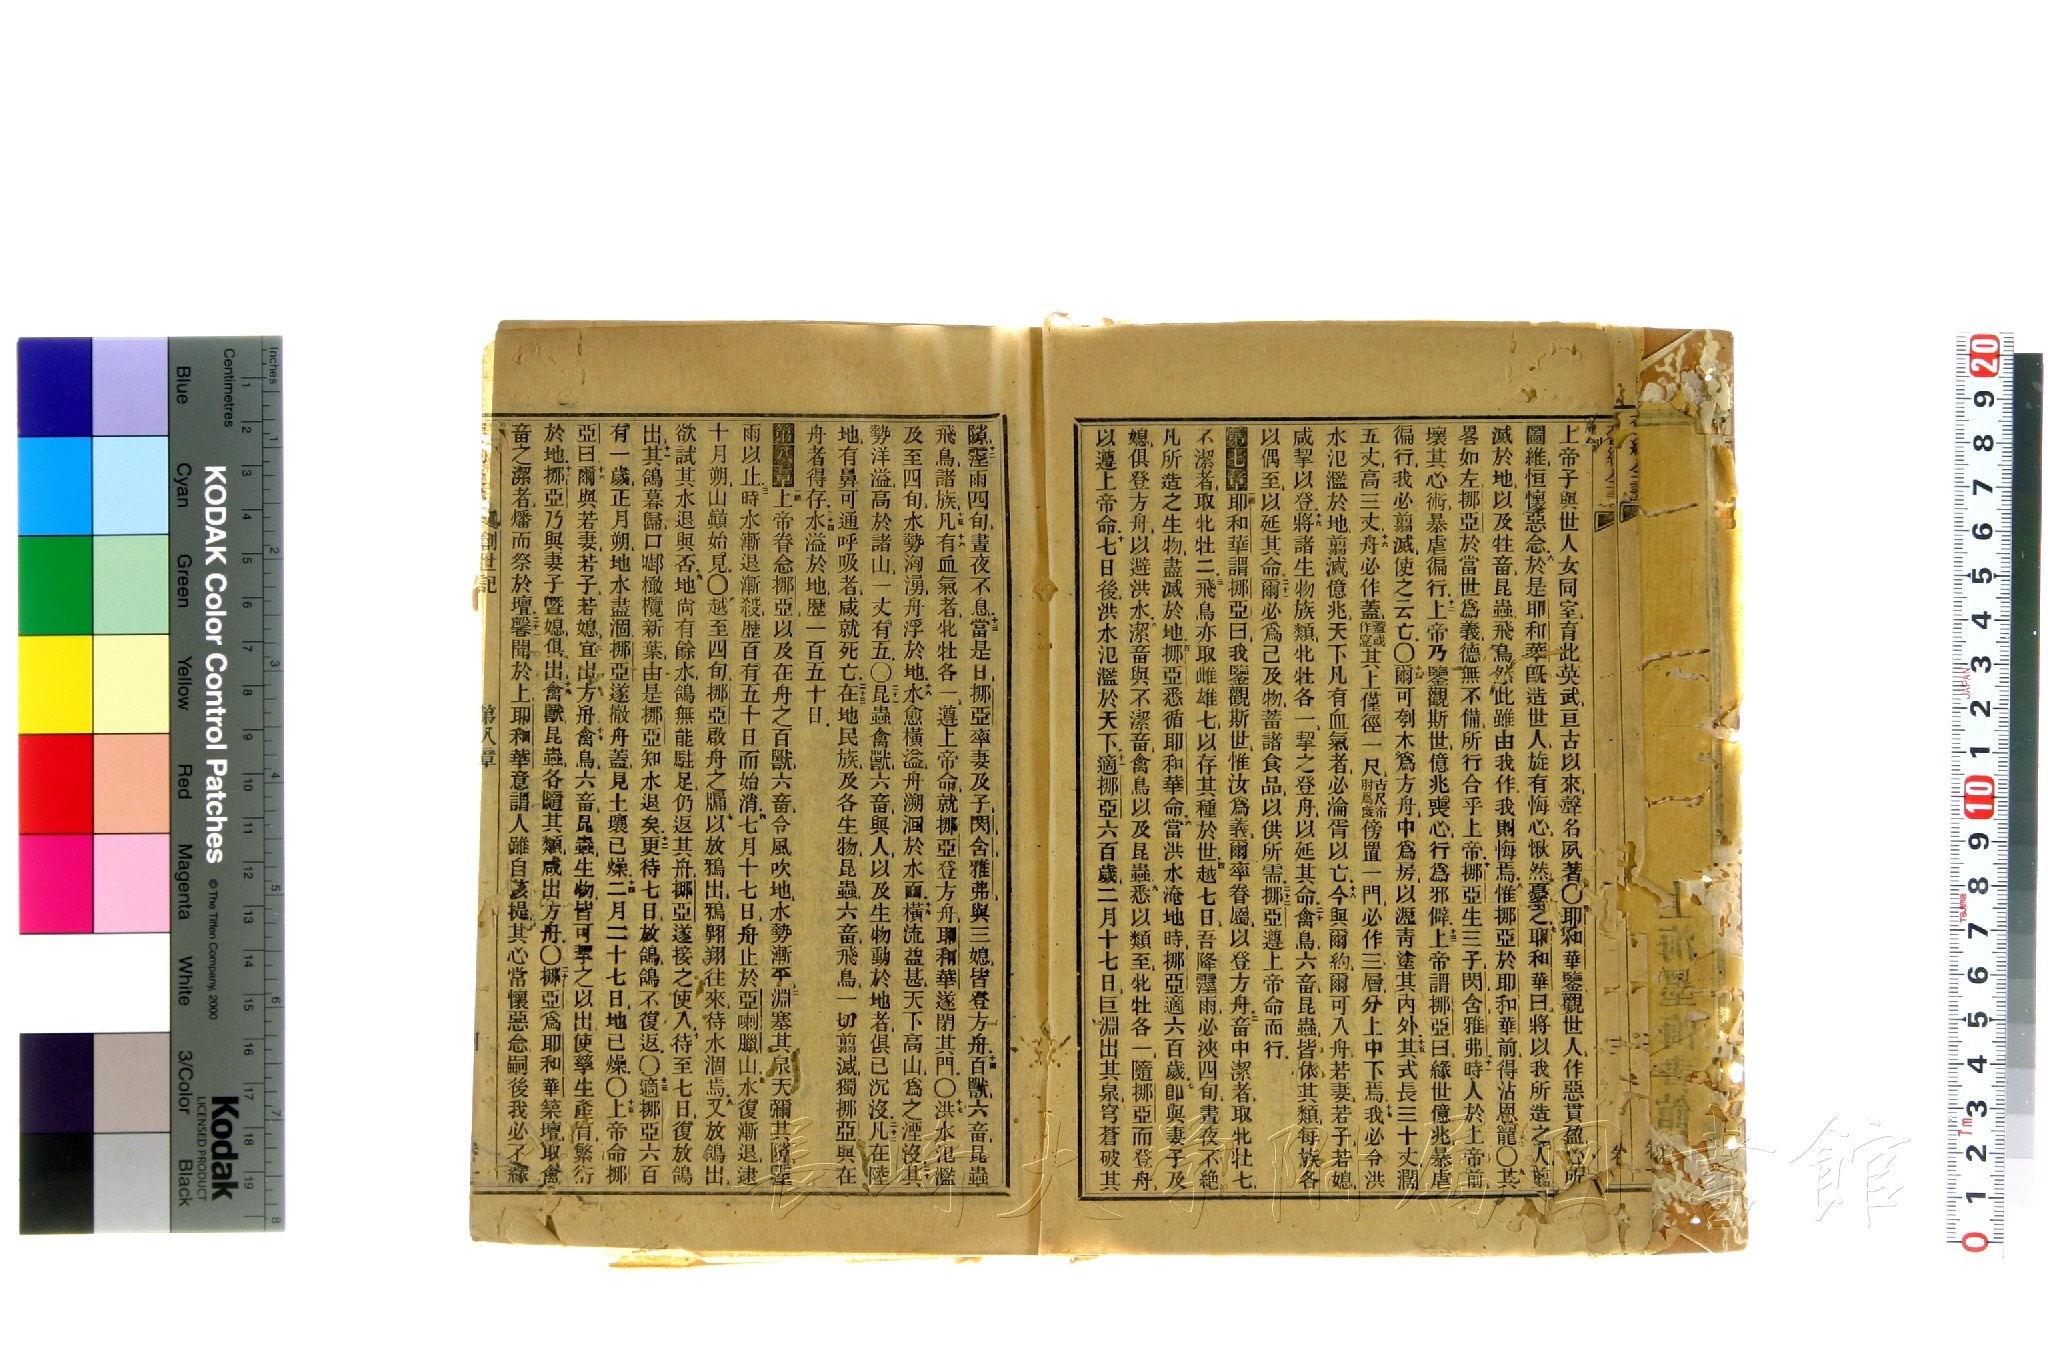 上帝子與世人女同室育此英武亘古以來聲名夙著〇耶和華鑒觀世人作惡貫盈心所
圖維恒懷惡念於是耶和華旣造世人旋有悔心愀然憂之耶和華曰將以我所造之人翦
滅於地以及牲畜昆蟲飛鳥然此雖由我作我則悔焉惟挪亞於耶和華前得沾恩寵〇其
畧如左挪亞於當世爲義德無不備所行合乎上帝挪亞生三子閃含雅弗時人於上帝前
壞其心術暴虐徧行上帝乃鑒觀斯世億兆喪心行爲邪僻上帝謂挪亞曰緣世億兆暴虐
徧行我必翦滅使之云亡〇爾可刳木爲方舟中爲房以瀝靑塗其內外其式長三十丈濶
五丈高三丈舟必作蓋蓋或作窗其上僅徑一尺古尺市肘爲度傍置一門必作三層分上中下焉我必令洪
水氾濫於地翦滅億兆天下凡有血氣者必淪胥以亡今與爾約爾可入舟若妻若子若媳
咸挈以登將諸生物族類牝牡各一挈之登舟以延其命禽鳥六畜昆蟲皆依其類每族各
以偶至以延其命爾必爲己及物蓄諸食品以供所需挪亞遵上帝命而行
第七章 耶和華謂挪亞曰我鑒觀斯世惟汝爲義爾率眷屬以登方舟畜中潔者取牝牡七
不潔者取牝牡二飛鳥亦取雌雄七以存其種於世越七日吾降霪雨必浹四旬晝夜不絶
凡所造之生物盡滅於地挪亞悉循耶和華命當洪水淹地時挪亞適六百歲卽與妻子及
媳俱登方舟以避洪水潔畜與不潔畜禽鳥以及昆蟲悉以類至牝牡各一隨挪亞而登舟
以遵上帝命七日後洪水氾濫於天下適挪亞六百歲二月十七日巨淵出其泉穹蒼破其
隙霪雨四旬晝夜不息當是日挪亞率妻及子閃含雅弗與三媳皆登方舟百獸六畜昆蟲
飛鳥諸族凡有血氣者牝牡各一遵上帝命就挪亞登方舟耶和華遂閉其門〇洪水氾濫
及至四旬水勢洶湧舟浮於地水愈橫溢舟溯洄於水面橫流益甚天下高山爲之湮沒其
勢洋溢高於諸山一丈有五〇昆蟲禽獸六畜與人以及生物動於地者俱已沉沒凡在陸
地有鼻可通呼吸者咸就死亡在地民族及各生物昆蟲六畜飛鳥一切翦滅獨挪亞與在
舟者得存水溢於地歷一百五十日
第八章 上帝眷念挪亞以及在舟之百獸六畜令風吹地水勢漸平淵塞其泉天彌其隙霪
雨以止時水漸退漸殺歷百有五十日而始消七月十七日舟止於亞喇臘山水復漸退逮
十月朔山巔始見〇越至四旬挪亞啟舟之牖以放鴉出鴉翱翔往來待水涸焉又放鴿出
欲試其水退與否地尙有餘水鴿無能駐足仍返其舟挪亞遂接之使入待至七日復放鴿
出其鴿暮歸口啣橄欖新葉由是挪亞知水退矣更待七日放鴿鴿不復返〇適挪亞六百
有一歲正月朔地水盡涸挪亞遂撤舟蓋見土壞已燥二月二十七日地已燥〇上帝命挪
亞曰爾與若妻若子若媳宜出方舟禽鳥六畜昆蟲生物皆可挈之以出使孳生產育繁衍
於地挪亞乃與妻子曁媳俱出禽獸昆蟲各隨其類咸出方舟〇挪亞爲耶和華築壇取禽
畜之潔者燔而祭於壇馨聞於上耶和華意謂人雖自孩提其心常懷惡念嗣後我必不緣
創世記 第八章
長崎大学附属図書館
KODAK Color Control Patches
© The Tiffen Company, 2000
Kodak
LICENSED PRODUCT
Inches
Centimetres
Blue Cyan Green Yellow Red Magenta White 3/Color Black